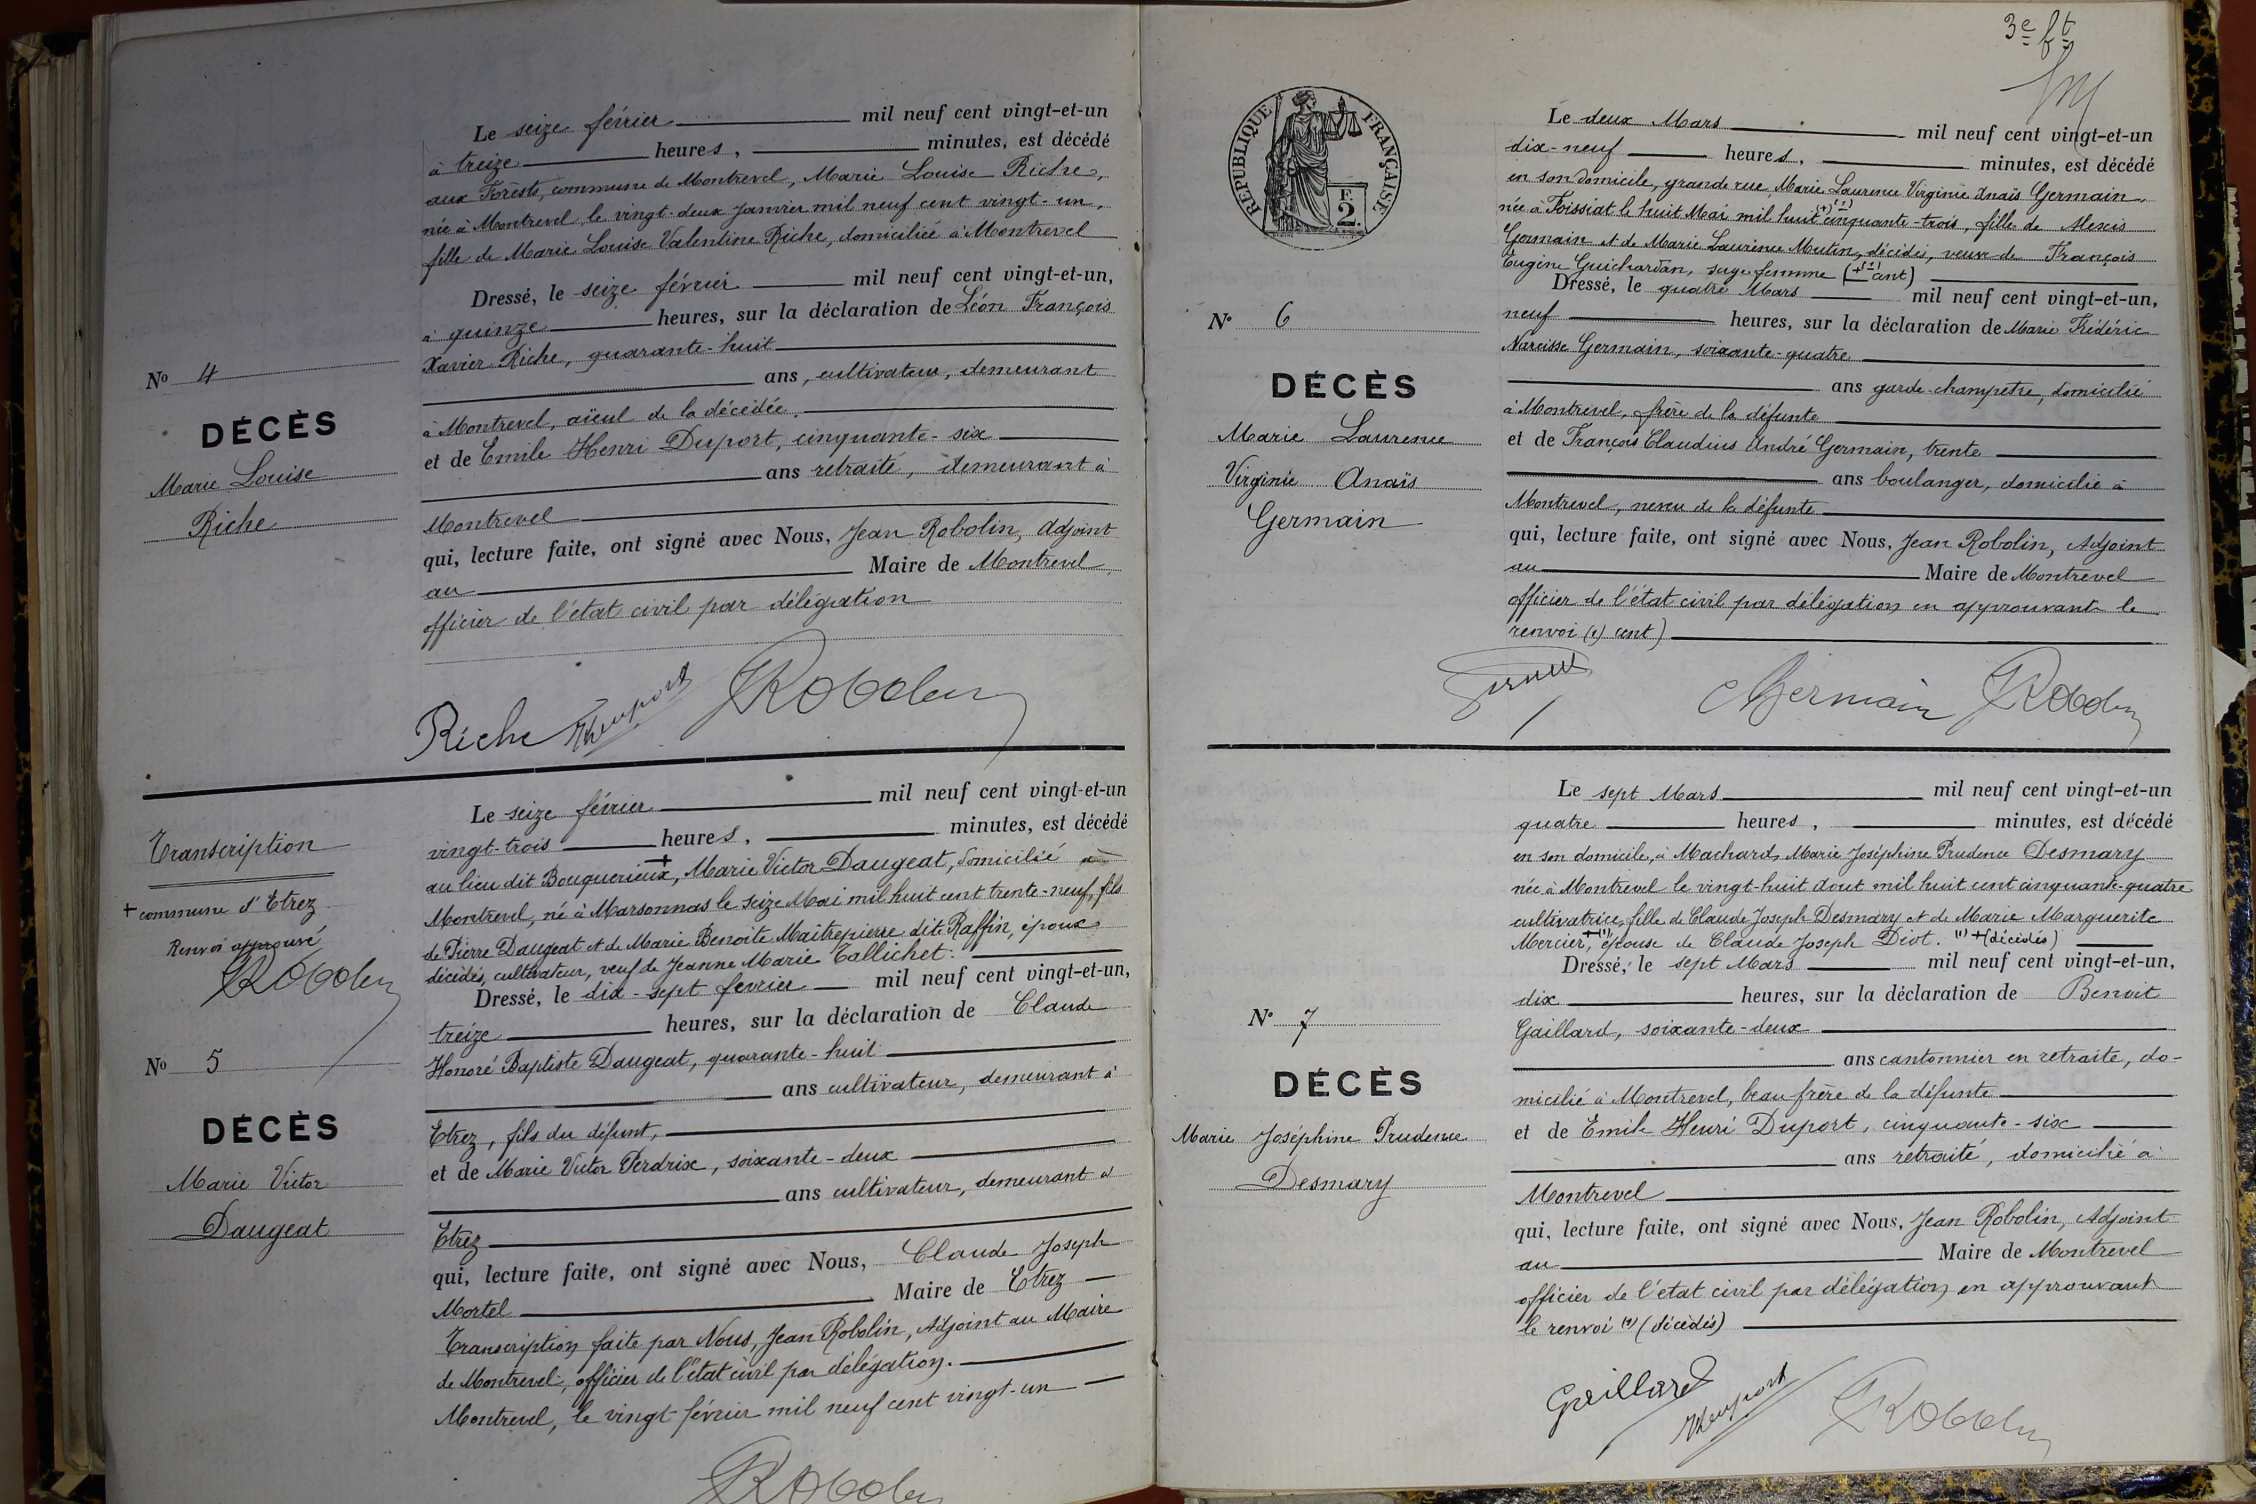 Le seize février mil neuf cent vingt-et-un
à treize heures, minutes, est décédé
aux Forêts, commune de Montrevel, Marie Louise Riche,
née à Montrevel le vingt-deux janvier mil neuf cent vingt-un,
fille de Marie Louise Valentine Riche, domiciliée à Montrevel
Dressé, le seize février mil neuf cent vingt-et-un,
à quinze heures, sur la déclaration de Léon François
Xavier Riche, quarante-huit
ans, cultivateur, demeurant
à Montrevel, aïeul de la décédée,
et de Emile Henri Duport, cinquante-six
ans retraité, demeurant à
Montrevel
qui, lecture faite, ont signé avec Nous, Jean Robolin, Adjoint
au Maire de Montrevel,
officier de l'état civil par délégation
No 4
DÉCÈS
Marie Louise
Riche
Riche Hduport JRobolin
Transcription
+ commune d'Etrez
Renvoi approuvé
JRobolin
No 5
DÉCÈS
Marie Victor
Daugeat
Le seize février mil neuf cent vingt-et-un
vingt-trois heures, minutes, est décédé
au lieu dit Bouquerieux +, Marie Victor Daugeat, domicilié à
Montrevel, né à Marsonnas le seize Mai mil huit cent trente-neuf, fils
de Pierre Daugeat et de Marie Benoite Maitrepierre dite Raffin, époux
décédés, cultivateur, veuf de Jeanne Marie Tallichet.
Dressé, le dix-sept février mil neuf cent vingt-et-un,
treize heures, sur la déclaration de Claude
Honoré Baptiste Daugeat, quarante-huit
ans cultivateur, demeurant à
Etrez, fils du défunt,
et de Marie Victor Perdrix, soixante-deux
ans cultivateur, demeurant à
Etrez
qui, lecture faite, ont signé avec Nous, Claude Joseph
Mortel Maire de Etrez
Transcription faite par Nous, Jean Robolin, Adjoint au Maire
de Montrevel, officier de l'état civil par délégation.
Montrevel, le vingt février mil neuf cent vingt-un
JRobolin
3e ft
RÉPUBLIQUE FRANÇAISE
F.
2.
No 6
DÉCÈS
Marie Laurence
Virginie Anaïs
Germain
Le deux Mars mil neuf cent vingt-et-un
dix-neuf heures, minutes, est décédé
en son domicile, grande rue Marie Laurence Virginie Anaïs Germain,
née à Foissiat le huit Mai mil huit (+)(1) cinquante-trois, fille de Alexis
Germain et de Marie Laurence Mutin, décédés, veuve de François
Eugène Guichardan, sage-femme (+(1) cent)
Dressé, le quatre Mars mil neuf cent vingt-et-un,
neuf heures, sur la déclaration de Marie Frédéric
Narcisse Germain, soixante-quatre
ans garde-champêtre, domicilié
à Montrevel, frère de la défunte
et de François Claudius André Germain, trente
ans boulanger, domicilié à
Montrevel, neveu de la défunte
qui, lecture faite, ont signé avec Nous, Jean Robolin, Adjoint
au Maire de Montrevel
officier de l'état civil par délégation en approuvant le
renvoi (1) cent)
Germain JRobolin
No 7
DÉCÈS
Marie Joséphine Prudence
Desmary
Le sept Mars mil neuf cent vingt-et-un
quatre heures, minutes, est décédé
en son domicile, à Machard, Marie Joséphine Prudence Desmary
née à Montrevel le vingt-huit Aout mil huit cent cinquante-quatre
cultivatrice, fille de Claude Joseph Desmary et de Marie Marguerite
Mercier, +(1) épouse de Claude Joseph Diot. (1) +(décédés)
Dressé, le sept Mars mil neuf cent vingt-et-un,
dix heures, sur la déclaration de Benoit
Gaillard, soixante-deux
ans cantonnier en retraite, do-
micilié à Montrevel, beau-frère de la défunte
et de Emile Henri Duport, cinquante-six
ans retraité, domicilié à
Montrevel
qui, lecture faite, ont signé avec Nous, Jean Robolin, Adjoint
au Maire de Montrevel
officier de l'état civil par délégation en approuvant
le renvoi (1) (décédés)
Gaillard Hduport JRobolin